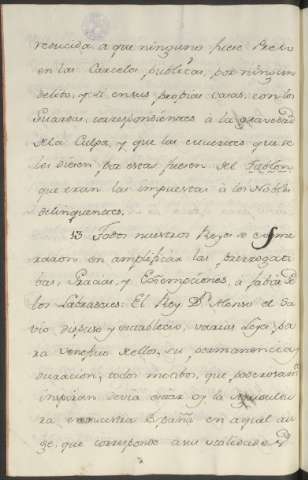 reducida a que ninguno fuese Preso
en las Carceles publicas, por ningun
delito, y si en sus propias casas, con los
Guardas, correspondientes à la gravedad
de la Culpa, y que las
se les diesen, por estas fuesen del
que eran las impuestas à los Nobles
delinquentes.
13 Todos nuestros Reyes se esme
raron en amplificar las prerrogati
bas, Gracias, y Esempciones, à fabor de
los Labradores: El Rey Dn. Alonso el Sa
vio dispuso y estableció, varias Leyes, pa
ra veneficio de ellos, su permanencia, y
duracion; todos motibos, que poderosamte.
inspiran devia estar oy la Agricultu
ra en nuestra España en aquel au
ge, que corresponde a su utilidad